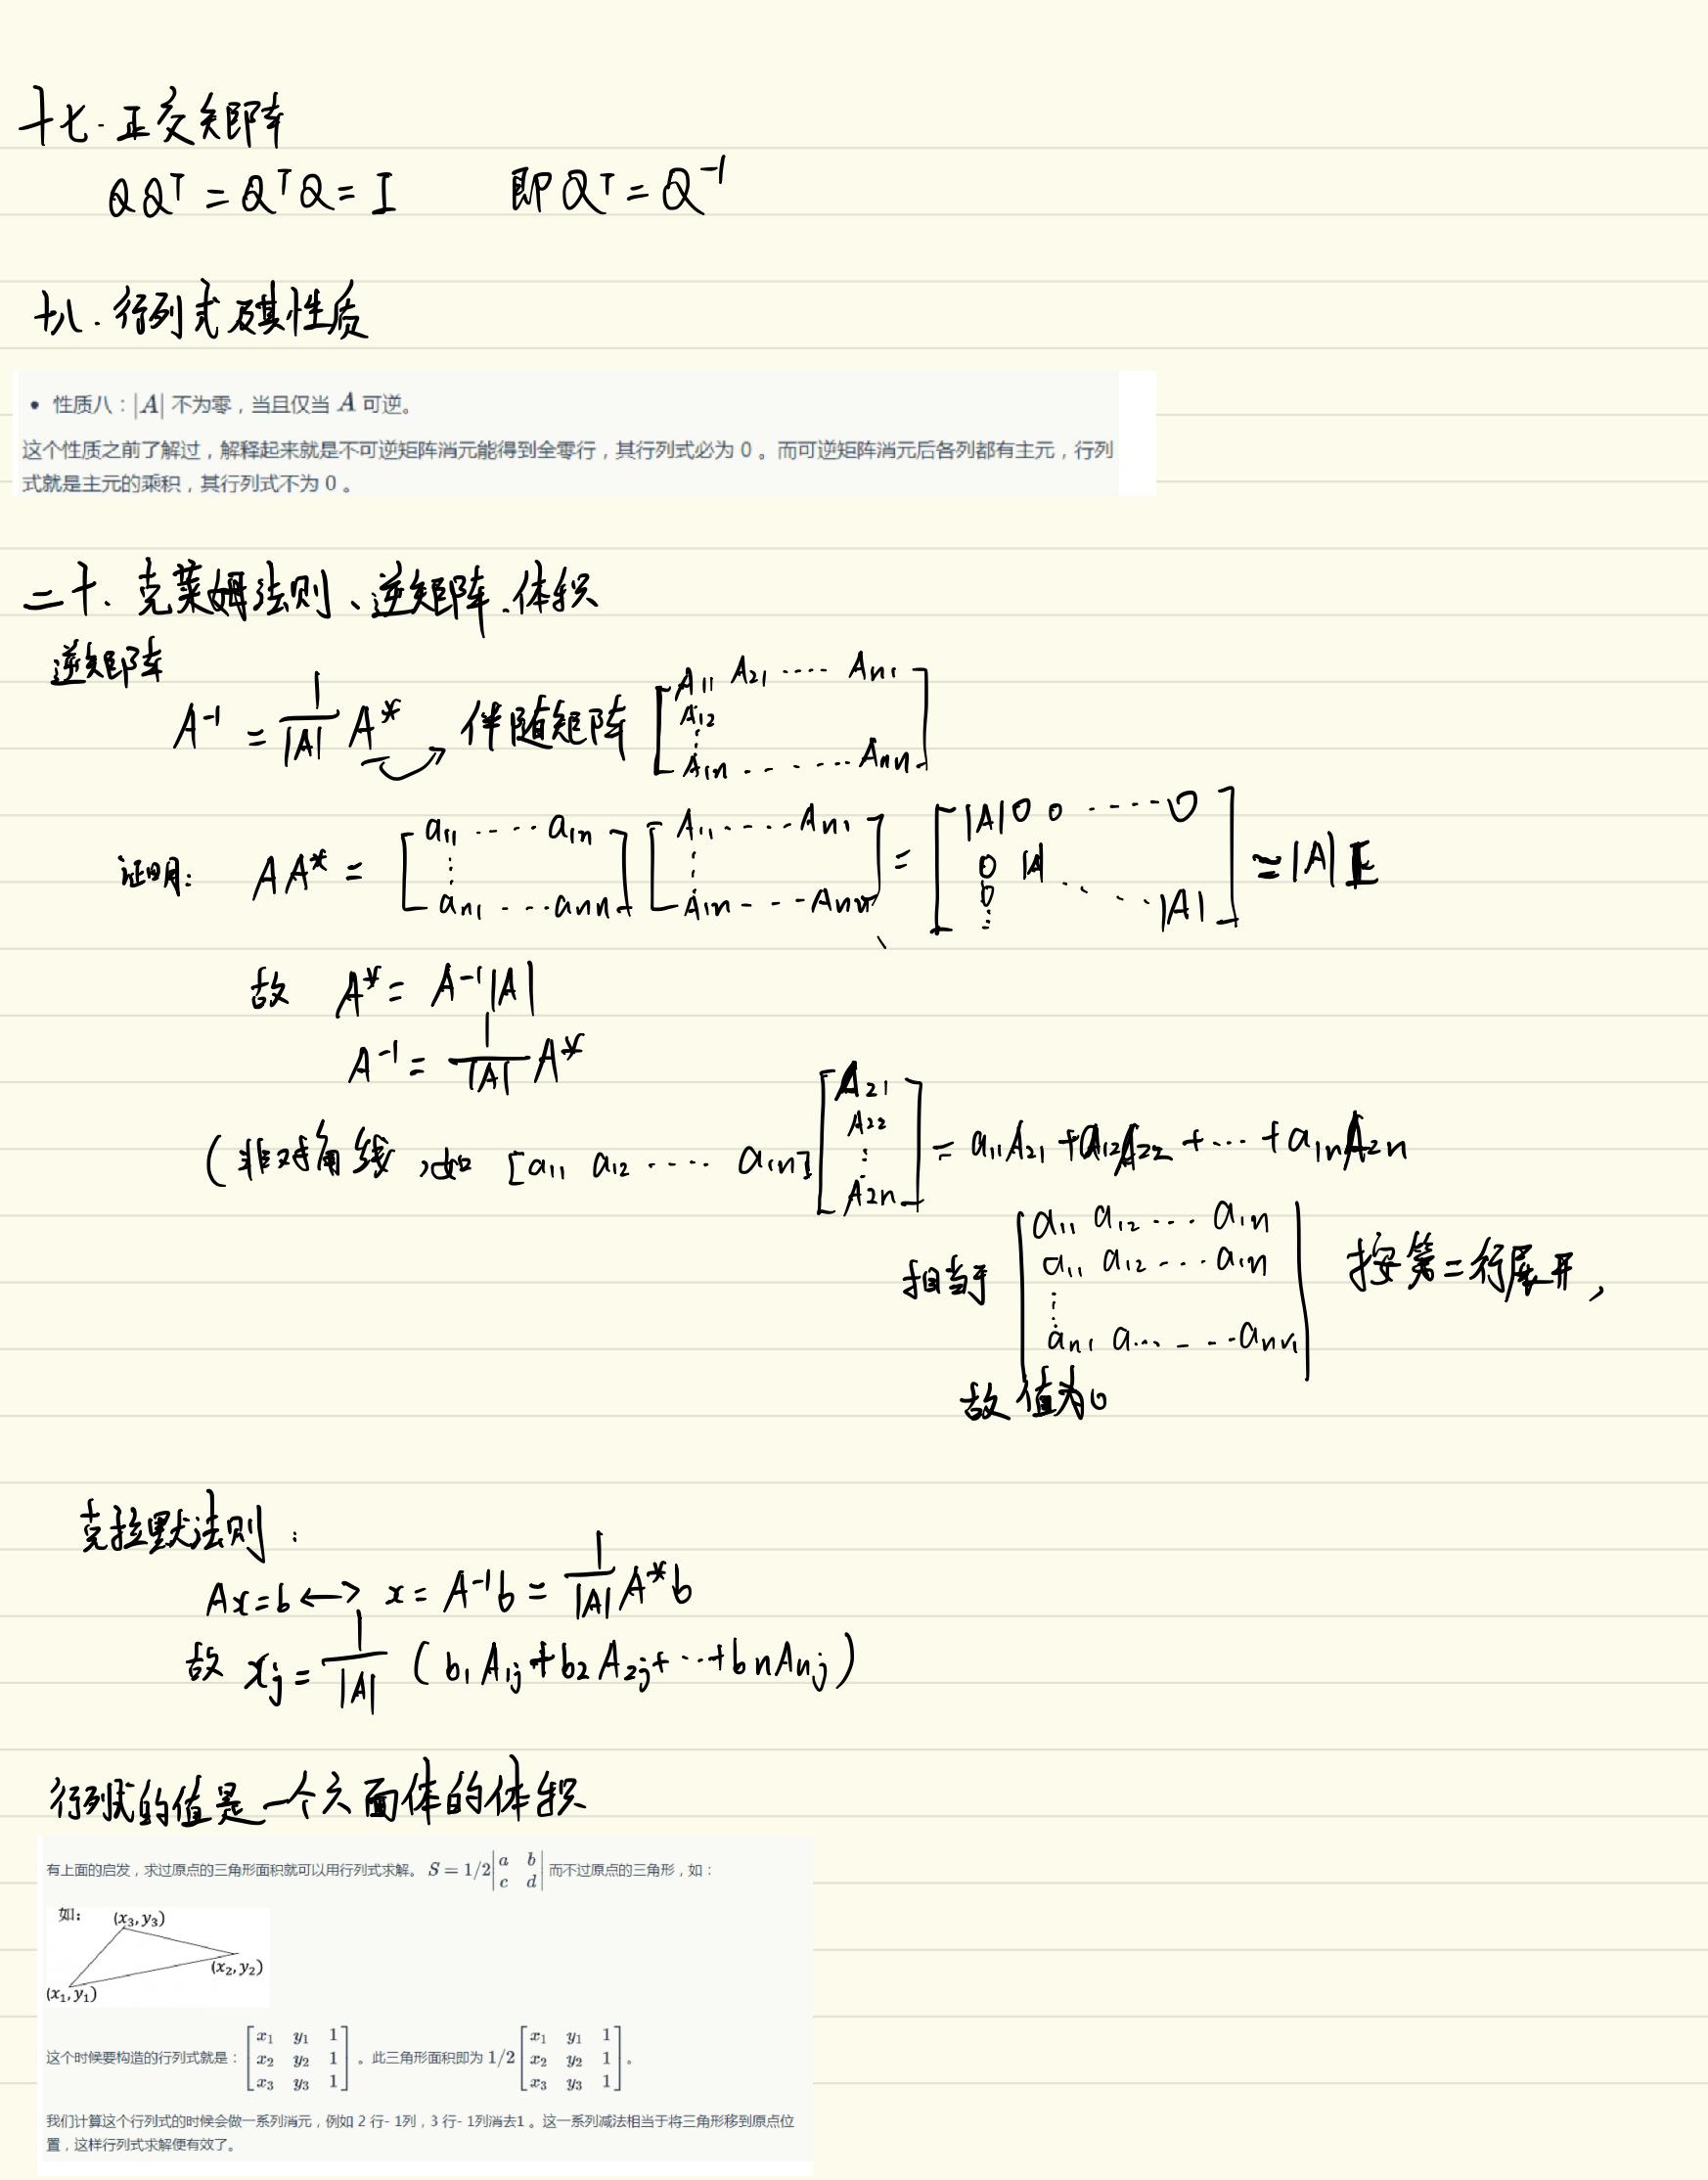 十七.正交矩阵
QQᵀ = QᵀQ = I 即 Qᵀ = Q⁻¹
十八.行列式及其性质
• 性质八：|A| 不为零，当且仅当 A 可逆。
这个性质之前了解过，解释起来就是不可逆矩阵消元能得到全零行，其行列式必为 0 。而可逆矩阵消元后各列都有主元，行列
式就是主元的乘积，其行列式不为 0 。
二十、克莱姆法则、逆矩阵、体积
逆矩阵
A⁻¹ = 1/|A| A* → 伴随矩阵 [A₁₁ A₂₁ ···· Aₙ₁
A₁₂
⋮
A₁ₙ ······ Aₙₙ]
证明: AA* = [a₁₁ ···· a₁ₙ ⋮ aₙ₁ ··· aₙₙ] [A₁₁ ···· Aₙ₁ ⋮ A₁ₙ ··· Aₙₙ] = [|A| 0 0 ····· 0
0 |A| ·
0 ⋮ ··· |A|] = |A| I
故 A* = A⁻¹|A|
A⁻¹ = 1/|A| A*
(非对角线,如 [a₁₁ a₁₂ ···· a₁ₙ] [A₂₁ A₂₂ ⋮ A₂ₙ] = a₁₁A₂₁ + a₁₂A₂₂ + ··· + a₁ₙA₂ₙ
相当于 |a₁₁ a₁₂ ··· a₁ₙ
a₁₁ a₁₂ ··· a₁ₙ
⋮
aₙ₁ a... - -- aₙₙ| 按第二行展开,
故值为0
克拉默法则:
Ax=b ⟷ x = A⁻¹b = 1/|A| A*b
故 xⱼ = 1/|A| (b₁A₁ⱼ + b₂A₂ⱼ + ··· + bₙAₙⱼ)
行列式的值是一个六面体的体积
有上面的启发，求过原点的三角形面积就可以用行列式求解。 S = 1/2|a b c d| 而不过原点的三角形，如：
如: (x₃, y₃)
(x₂, y₂)
(x₁, y₁)
这个时候要构造的行列式就是：[x₁ y₁ 1 x₂ y₂ 1 x₃ y₃ 1] 。此三角形面积即为 1/2 [x₁ y₁ 1 x₂ y₂ 1 x₃ y₃ 1] 。
我们计算这个行列式的时候会做一系列消元，例如 2 行- 1列，3 行- 1列消去1 。这一系列减法相当于将三角形移到原点位
置，这样行列式求解便有效了。